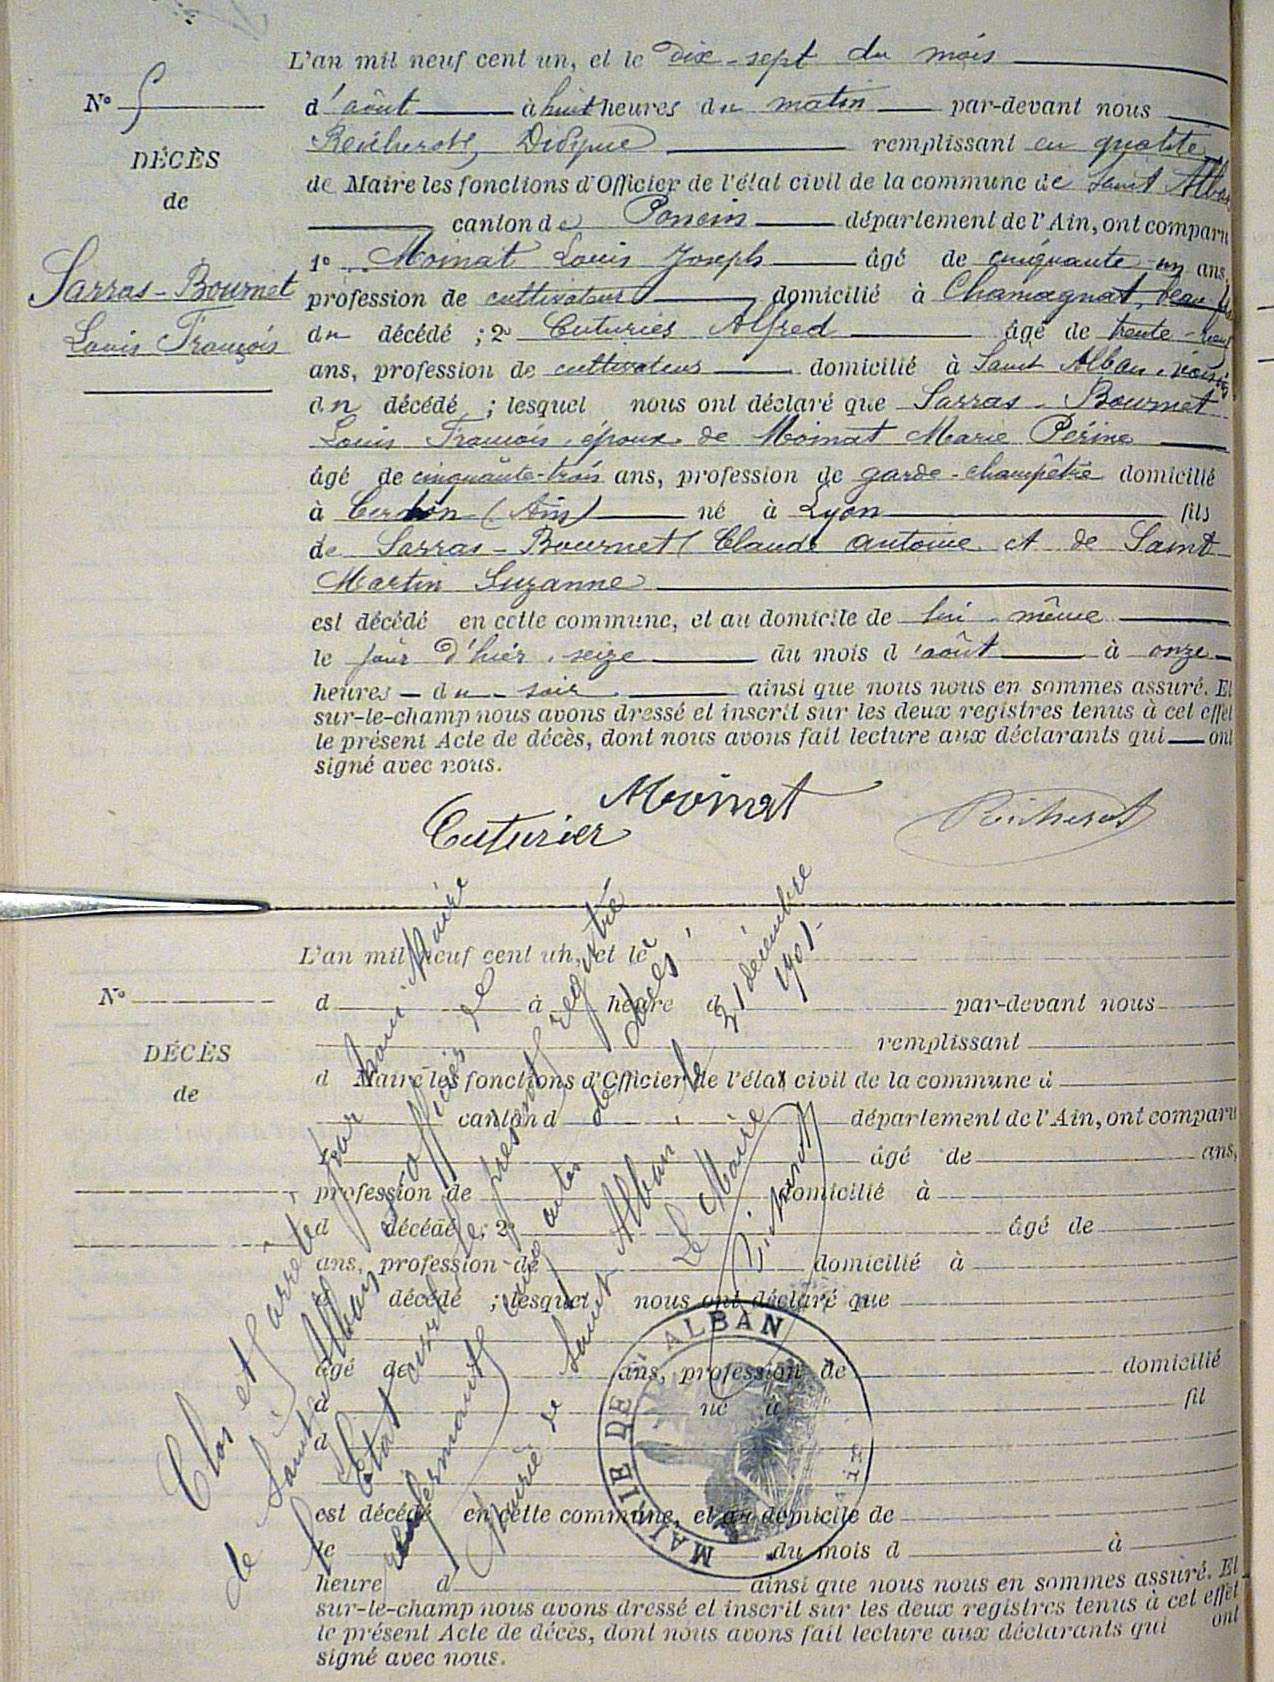 L'an mil neuf cent un, et le dix-sept du mois
N° 5
d'août à huit heures du matin par-devant nous
DÉCÈS
remplissant en qualité
de Maire les fonctions d'Officier de l'état civil de la commune de Saint Alban
de
canton de Poncin département de l'Ain, ont comparu
1° Moinat Louis Joseph âgé de cinquante-un ans,
Sarras-Bournet
profession de cultivateur domicilié à Chamagnat, beau
Louis François
du décédé ; 2° Cuturier Alfred âgé de trente-neuf
ans, profession de cultivateur domicilié à Saint Alban, voisin
du décédé ; lesquel nous ont déclaré que Sarras-Bournet
Louis François, époux de Moinat Marie Périne
âgé de cinquante-trois ans, profession de garde-champêtre domicilié
à Cerdon (Ain) né à Lyon fils
de Sarras-Bournet Claude antoine et de Saint
Martin Suzanne
est décédé en cette commune, et au domicile de lui-même
le jour d'hier, seize du mois d'août à onze
heures du soir ainsi que nous nous en sommes assuré. Et
sur-le-champ nous avons dressé et inscrit sur les deux registres tenus à cet effet
le présent Acte de décès, dont nous avons fait lecture aux déclarants qui ont
signé avec nous.
Moinat
Cuturier
L'an mil neuf cent un, et le
N°
d à heure d par-devant nous
DÉCÈS
remplissant
de
d Maire les fonctions d'Officier de l'état civil de la commune d
canton d département de l'Ain, ont comparu
âgé de ans,
profession de domicilié à
d décédé ; 2° âgé de
ans, profession de domicilié à
décédé ; lesquel nous ont déclaré que
âgé de ans, profession de domicilié
à né à fil
d
est décédé en cette commune, et au domicile de
le du mois d à
heure d ainsi que nous nous en sommes assuré. Et
sur-le-champ nous avons dressé et inscrit sur les deux registres tenus à cet effet
le présent Acte de décès, dont nous avons fait lecture aux déclarants qui ont
signé avec nous.
Clos et arrêté par nous Maire
de Saint Alban, officier de
l'Etat civil le présent registre
renfermant cinq actes de décès
Mairie de Saint Alban, le 31 décembre
1901
Le Maire
MAIRIE DE ST ALBAN